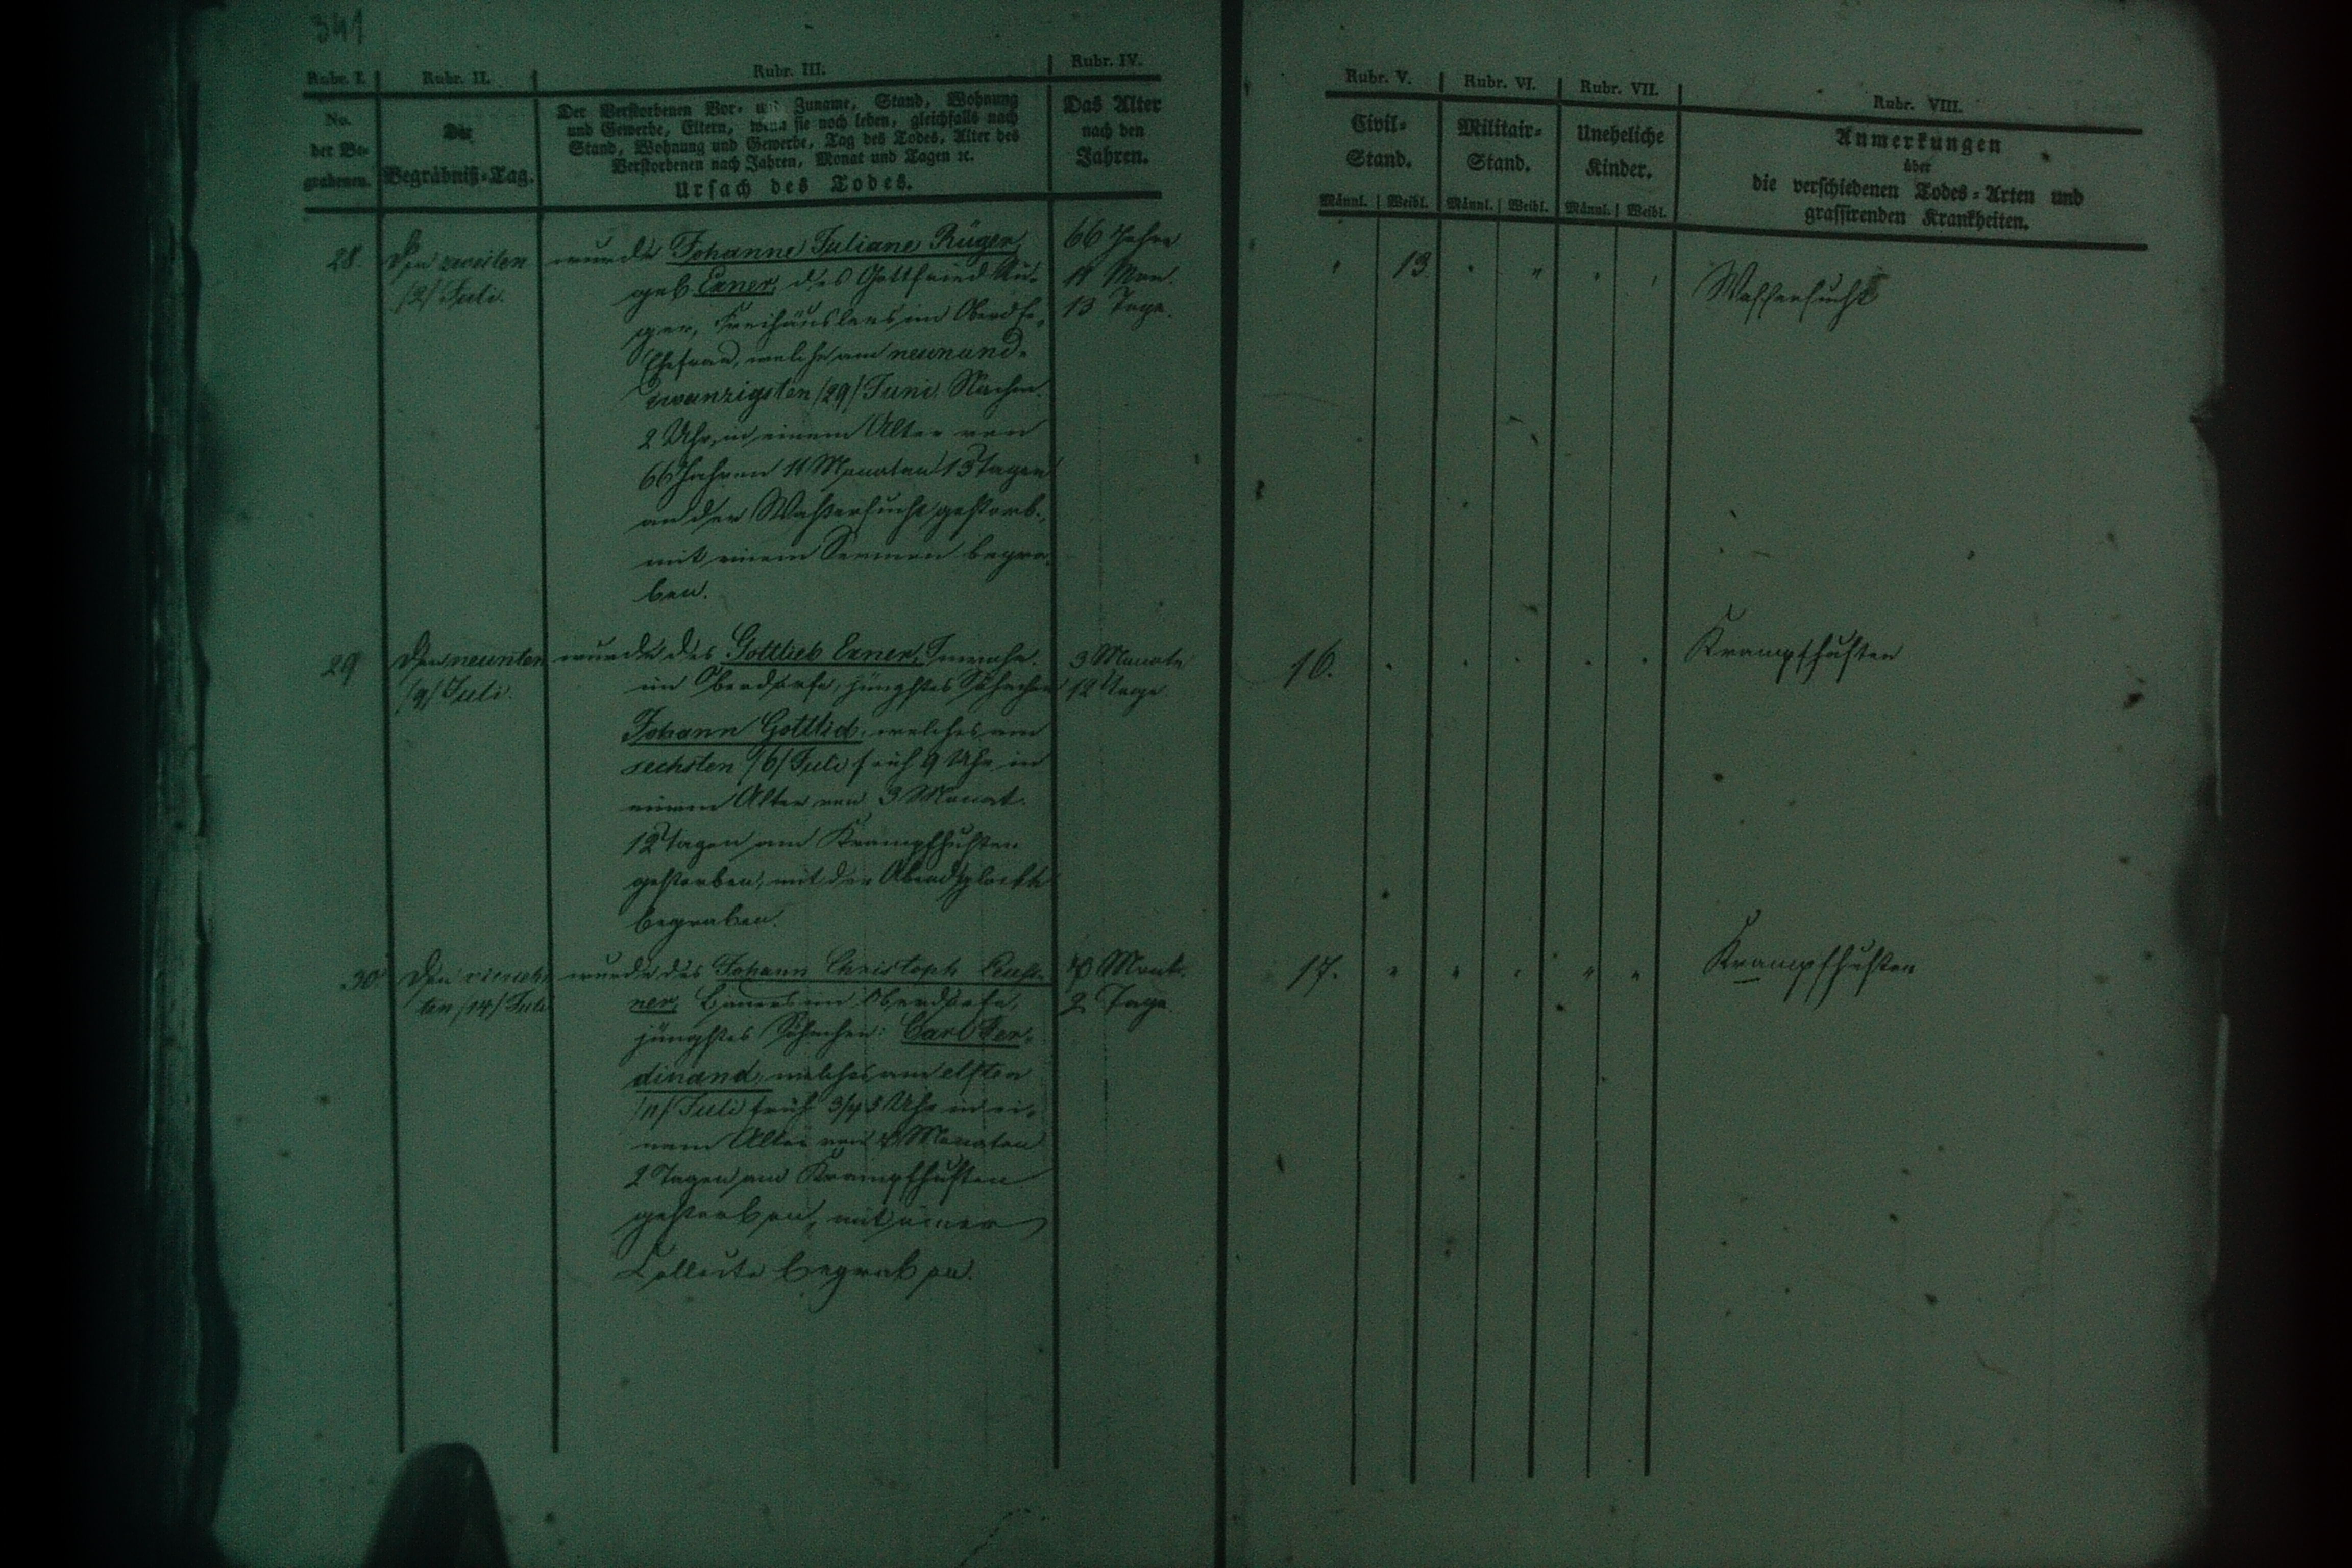 341
Rubr. I. Rubr. II. Rubr. III. Rubr. IV.
No. der Be-grabenen.
Der Begräbniß-Tag.
Der Verstorbenen Vor- und Zuname, Stand, Wohnung
und Gewerbe, Eltern, wenn sie noch leben, gleichfalls nach
Stand, Wohnung und Gewerbe, Tag des Todes, Alter des
Verstorbenen nach Jahren, Monat und Tagen ꝛc.
Ursach des Todes.
Das Alter
nach den
Jahren.
28.
Den zweiten
/2/ Juli.
wurde Johanne Juliane Rüger,
geb. Exner, des Gottfried Rü-
ger, Freihäuslers im Oberdfe,
Ehefrau, welche am neunund-
zwanzigsten /29/ Juni Nachm.
2 Uhr, in einem Alter von
66 Jahren 11 Monaten 13 Tagen
an der Waßersucht gestorb.,
mit einem Sermon begra-
ben.
66 Jahre
11 Mon.
13 Tage.
29
Den neunten
/9/ Juli.
wurde des Gottlieb Exner, Inwohn.
im Oberdorfe, jüngstes Söhnchen
Johann Gottlieb, welches am
sechsten /6/ Juli früh 9 Uhr in
einem Alter von 3 Monat.
12 Tagen am Krampfhusten
gestorben, mit der Abendglocke
begraben.
3 Monate
12 Tage.
30
Den vierzehn
ten /14/ Juli
wurde des Johann Christoph
ner, Bauers im Oberdorfe,
jüngstes Söhnchen: Carl Fer-
dinand, welches am elften
/11/ Juli früh 3/4 3 Uhr in ei-
nem Alter von Monaten
2 Tagen am Krampfhusten
gestorben, mit einer
Collecte begraben.
Mont.
2 Tage
Rubr. V. Rubr. VI. Rubr. VII. Rubr. VIII.
Civil-
Stand.
Militair-
Stand.
Uneheliche
Kinder.
Anmerkungen
über
die verschiedenen Todes-Arten und
grassirenden Krankheiten.
Männl. Weibl. Männl. Weibl. Männl. Weibl.
13. Wassersucht
16. Krampfhusten
17. Krampfhusten